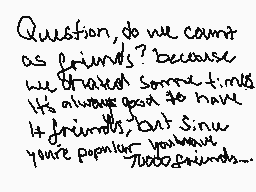 Question, do we count
as friends? because
we drawed some times
It's always good to have
1+ friends, but since
you're popular you have
7000 friends...